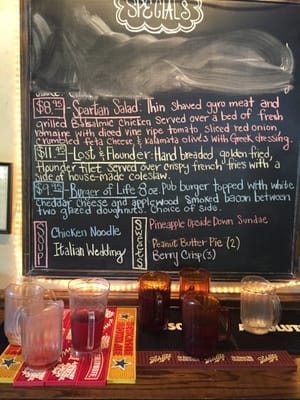 SPECIALS
$8.95 - Spartan Salad: Thin shaved gyro meat and
grilled Balsalmic Chicken served over a bed of fresh
romaine with diced vine ripe tomato sliced red onion,
crumbled feta cheese, & kalamata olives with Greek dressing.
$11.95 - Lost & Flounder: Hand breaded, golden-fried,
flounder filet served over crispy french fries with a
side of house-made coleslaw.
$9.95 - Burger of Life 8oz. Pub burger topped with white
cheddar cheese and applewood smoked bacon between
two glazed doughnuts. Choice of side.
SOUP
Chicken Noodle
Italian Wedding
Pineapple Upside Down Sundae
Peanut Butter Pie (2)
Berry Crisp (3)